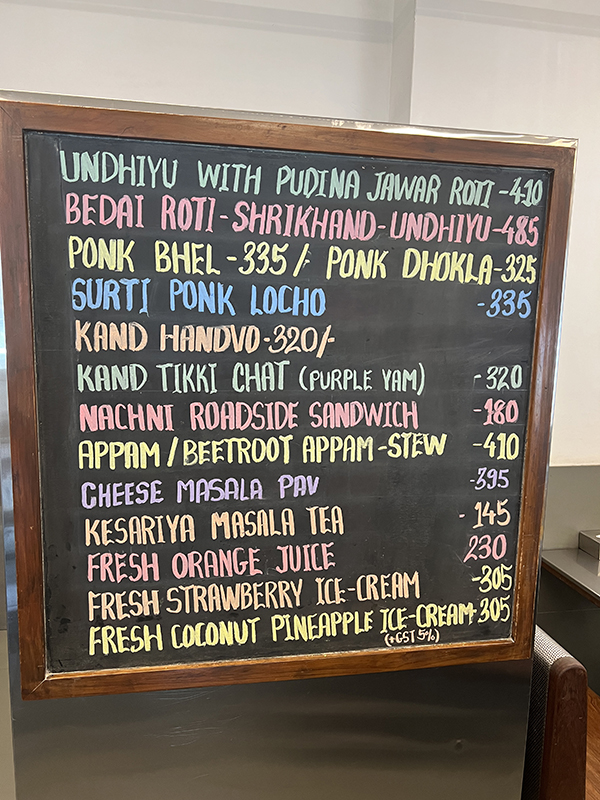 UNDHIYU WITH PUDINA JAWAR ROTI -410
BEDAI ROTI-SHRIKHAND-UNDHIYU-485
PONK BHEL -335/- PONK DHOKLA-325
SURTI PONK LOCHO -335
KAND HANDVO-320/-
KAND TIKKI CHAT (PURPLE YAM) -320
NACHNI ROADSIDE SANDWICH -180
APPAM/BEETROOT APPAM-STEW -410
CHEESE MASALA PAV -395
KESARIYA MASALA TEA - 145
FRESH ORANGE JUICE 230
FRESH STRAWBERRY ICE-CREAM -305
FRESH COCONUT PINEAPPLE ICE-CREAM-305
(+GST 5%)